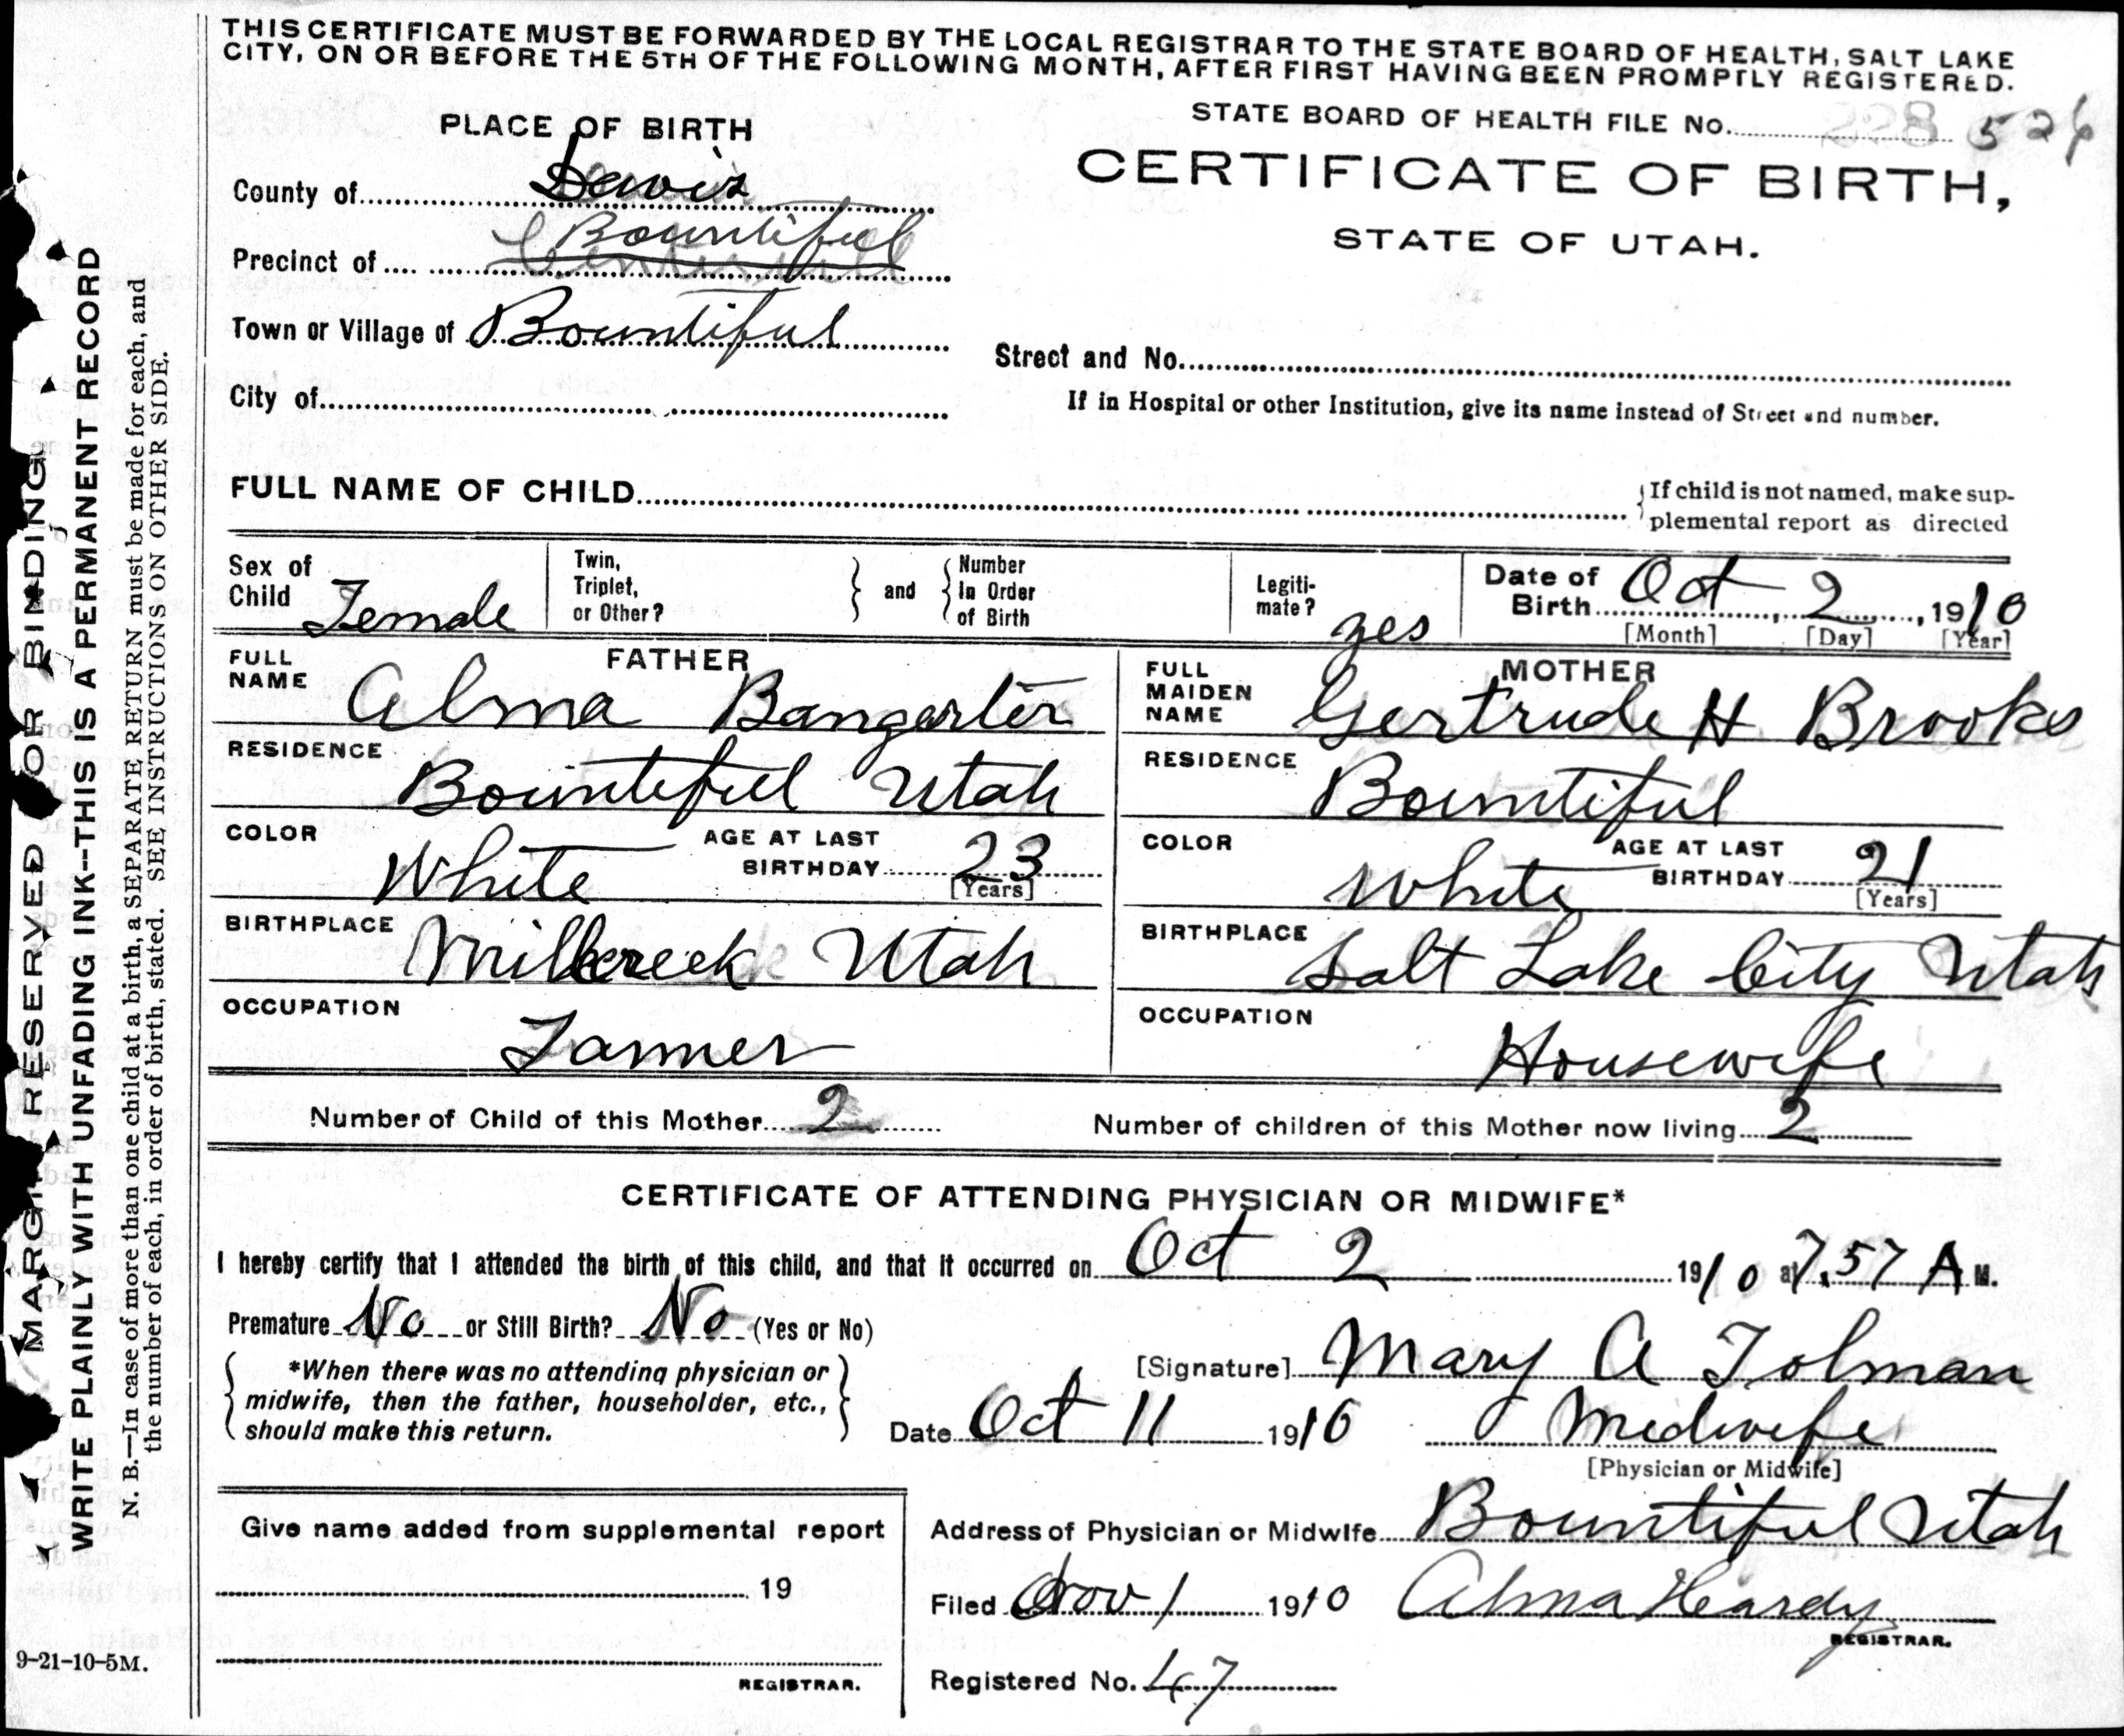 THIS CERTIFICATE MUST BE FORWARDED BY THE LOCAL REGISTRAR TO THE STATE BOARD OF HEALTH, SALT LAKE
CITY, ON OR BEFORE THE 5TH OF THE FOLLOWING MONTH, AFTER FIRST HAVING BEEN PROMPTLY REGISTERED.
STATE BOARD OF HEALTH FILE No. 228 526
PLACE OF BIRTH
CERTIFICATE OF BIRTH,
STATE OF UTAH.
County of Davis
Bountiful
Precinct of Centerville
Town or Village of Bountiful
Street and No.
City of
If in Hospital or other Institution, give its name instead of Street and number.
FULL NAME OF CHILD
If child is not named, make sup-
plemental report as directed
Sex of Child Female
Twin, Triplet, or Other? and Number In Order of Birth
Legiti-mate? yes
Date of Birth Oct 2, 1910
[Month] [Day] [Year]
FATHER
FULL NAME Alma Bangerter
RESIDENCE Bountiful Utah
COLOR White AGE AT LAST BIRTHDAY 23 [Years]
BIRTHPLACE Millcreek Utah
OCCUPATION Farmer
MOTHER
FULL MAIDEN NAME Gertrude H Brooks
RESIDENCE Bountiful
COLOR White AGE AT LAST BIRTHDAY 21 [Years]
BIRTHPLACE Salt Lake City Utah
OCCUPATION Housewife
Number of Child of this Mother 2 Number of children of this Mother now living 2
CERTIFICATE OF ATTENDING PHYSICIAN OR MIDWIFE*
I hereby certify that I attended the birth of this child, and that it occurred on Oct 2 1910 at 7.57 A M.
Premature No or Still Birth? No (Yes or No)
*When there was no attending physician or
midwife, then the father, householder, etc.,
should make this return.
[Signature] Mary A Tolman
Date Oct 11 1910 Midwife
[Physician or Midwife]
Give name added from supplemental report
19
REGISTRAR.
Address of Physician or Midwife Bountiful Utah
Filed Nov 1 1910 Alma Hardy
REGISTRAR.
Registered No. 47
9-21-10-5M.
MARGIN RESERVED FOR BINDING.
WRITE PLAINLY WITH UNFADING INK--THIS IS A PERMANENT RECORD
N. B.—In case of more than one child at a birth, a SEPARATE RETURN must be made for each, and
the number of each, in order of birth, stated. SEE INSTRUCTIONS ON OTHER SIDE.